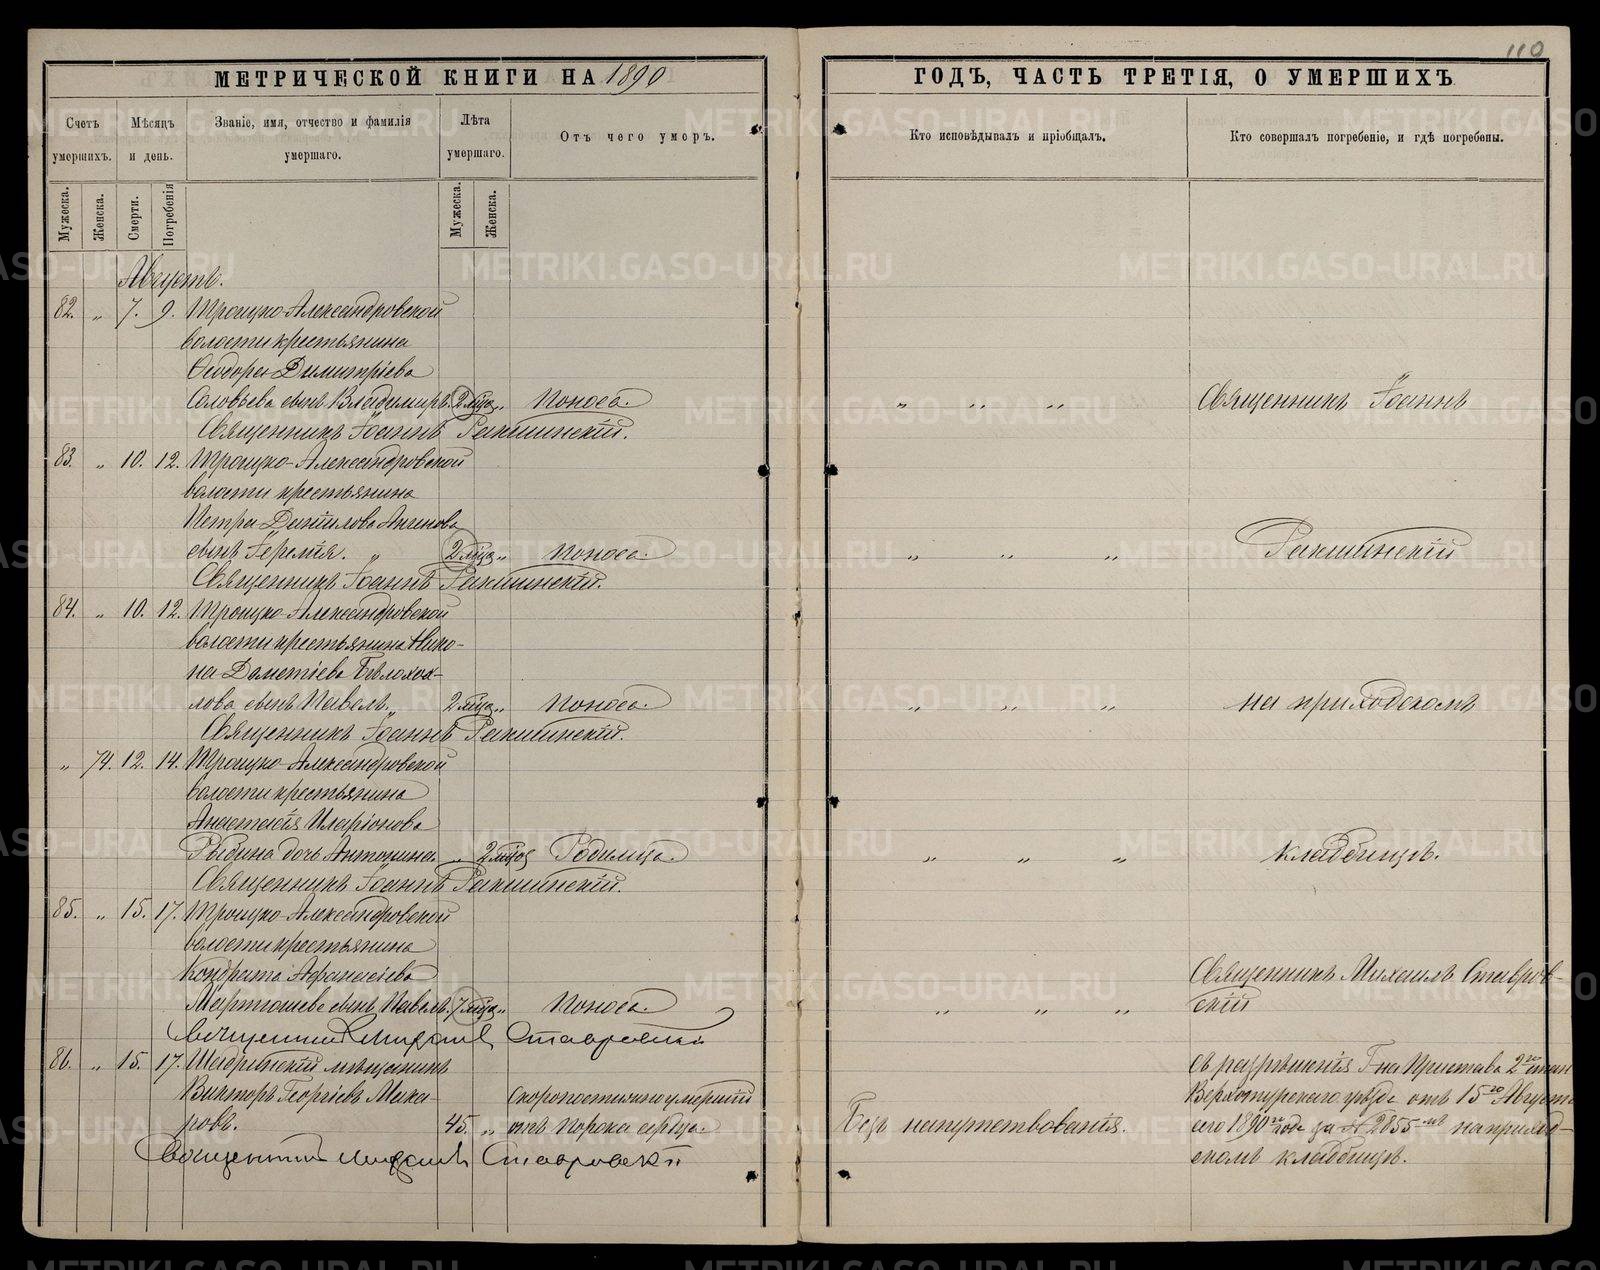 110
МЕТРИЧЕСКОЙ КНИГИ НА 1890
ГОДЪ, ЧАСТЬ ТРЕТІЯ, О УМЕРШИХЪ
Счетъ умершихъ.
Мѣсяцъ и день.
Званіе, имя, отчество и фамилія умершаго.
Лѣта умершаго.
Отъ чего умеръ.
Кто исповѣдывалъ и пріобщалъ.
Кто совершалъ погребеніе, и гдѣ погребены.
Мужеска.
Женска.
Смерти.
Погребенія
Мужеска.
Женска.
Августъ.
82. „ 7. 9. Троицко-Александровской
волости крестьянина
Ѳеодора Димитріева
Соловьева сынъ Владимиръ. 2 мѣц. „ Поноса. „ „ „ Священникъ Іоаннъ
Священникъ Іоаннъ Ракшинскій.
83. „ 10. 12. Троицко-Александровской
волости крестьянина
Петра Данилова
сынъ Іеремія. „ 2 мѣц. „ Поноса. „ „ „ Ракшинскій
Священникъ Іоаннъ Ракшинскій.
84. „ 10. 12. Троицко-Александровской
волости крестьянина Нико-
на Дометіева Бѣлохох-
лова сынъ Павелъ „ 2 мѣц. „ Поноса. „ „ „ на приходскомъ
Священникъ Іоаннъ Ракшинскій.
„ 74. 12. 14. Троицко-Александровской
волости крестьянина
Анастасія Иларіонова
Рыбина дочь Антонина „ 2 мѣц. Родимца. „ „ „ кладбищѣ.
Священникъ Іоаннъ Ракшинскій.
85. „ 15. 17. Троицко-Александровской
волости крестьянина
Кондрата Афанасіева
Мартюшева сынъ Павелъ. 7 мѣц. „ Поноса. „ „ „
Священникъ Михаилъ Ставров-
скій
Священникъ Михаилъ Ставровскій
86. „ 15. 17. Шадринскій мѣщанинъ
Викторъ Георгіевъ Мака-
ровъ. 45. „
Скоропостижно умершій
отъ порока сердца.
Безъ напутствованія.
съ разрѣшенія Г-на Пристава 2го стан
Верхотурскаго уѣзда отъ 15го Августа
сего 1890го года за № 2855 на приход-
скомъ кладбищѣ.
Священникъ Михаилъ Ставровскій
METRIKI.GASO-URAL.RU